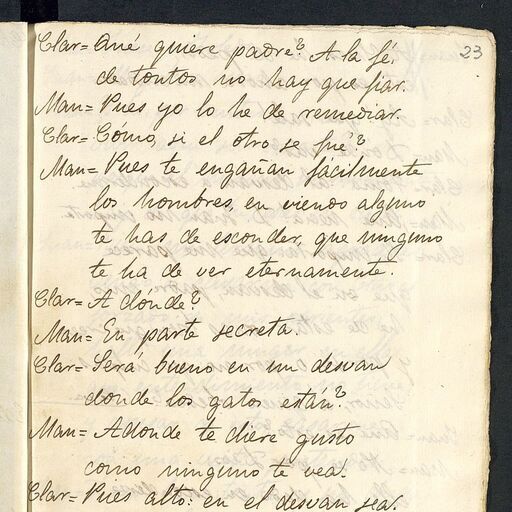 23
Clar= Qué quiere padre? A la fé,
de tontos no hay que fiar.
Man= Pues yo lo he de remediar.
Clar= Como, si el otro se fué?
Man= Pues te engañan fácilmente
los hombres, en viendo alguno
te has de esconder, que ninguno
te ha de ver eternamente.
Clar= A dónde?
Man= En parte secreta.
Clar= Será bueno en un desvan
donde los gatos están?
Man= Adonde te diere gusto
como ninguno te vea.
Clar= Pues alto: en el desvan sea.